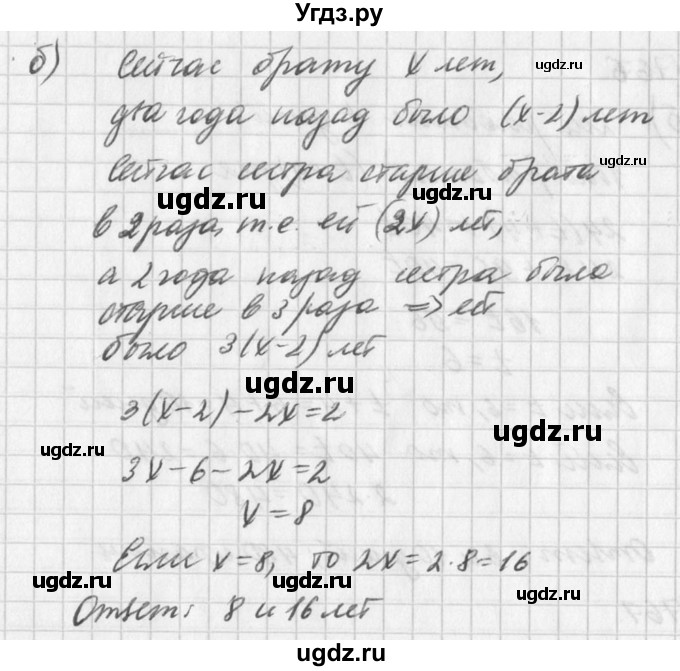 Угдз.ру
б) Сейчас брату x лет,
два года назад было (x-2) лет
ugdz.ru
Сейчас сестра старше брата
ugdz.ru
ugdz.ru
в 2 раза, т.е. ей (2x) лет,
ugdz.ru
а 2 года назад сестра была
старше в 3 раза => ей
ugdz.ru
было 3(x-2) лет
ugdz.ru
3(x-2)-2x=2
ugdz.ru
ugdz.ru
3x-6-2x=2
x=8
ugdz.ru
Если x=8, то 2x=2·8=16
ugdz.ru
Ответ: 8 и 16 лет
ugdz.ru
ugdz.ru